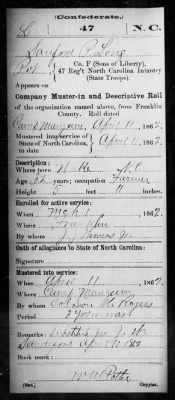 (Confederate.)
L 47 N.C.
Sanford P. Long
Pvt, Co. F (Sons of Liberty),
47 Reg't North Carolina Infantry
(State Troops).
Appears on
Company Muster-in and Descriptive Roll
of the organization named above, from Franklin
County. Roll dated
Camp Mangum, April 11, 1862.
Mustered into service of
State of North Carolina, April 11, 1862.
to date
Description:
Where born Wake N.C.
Age years; occupation Farmer
Height 5 feet 11 inches.
Enrolled for active service:
When Mch 1, 1862.
Where Franklin
By whom
Oath of allegiance to State of North Carolina:
Signature
Mustered into service:
When April 11, 1862.
Where Camp Mangum
By whom Col Sion H. Rogers
Period 2 years or war
Remarks:
April 10 1862
Book mark:
(580) Copyist.